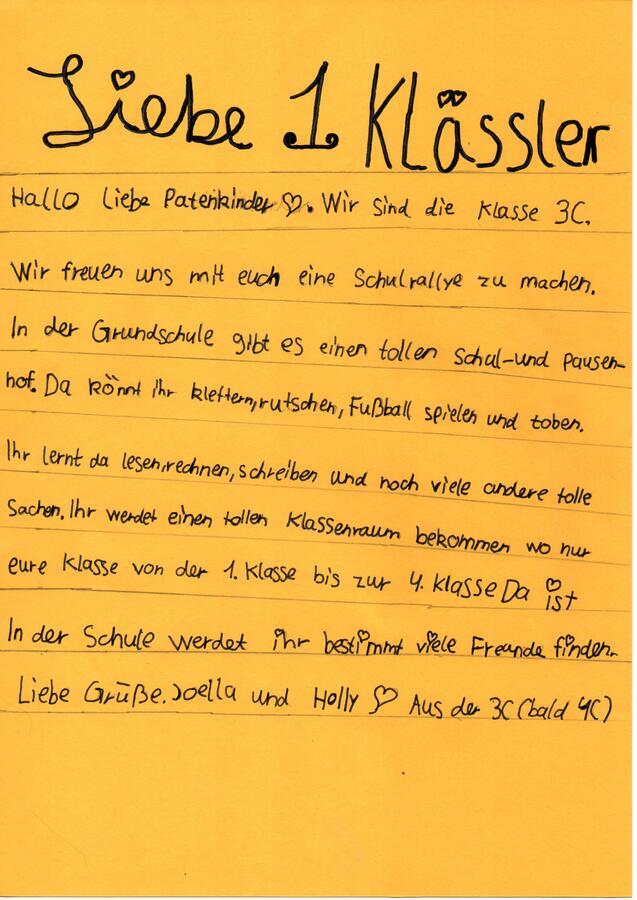 Liebe 1 Klässler
Hallo liebe Patenkinder ♡. Wir sind die Klasse 3C.
Wir freuen uns mit euch eine Schulrallye zu machen.
In der Grundschule gibt es einen tollen Schul-und Pausen-
hof. Da könnt ihr klettern, rutschen, Fußball spielen und toben.
Ihr lernt da lesen, rechnen, schreiben und noch viele andere tolle
Sachen. Ihr werdet einen tollen Klassenraum bekommen wo nur
eure Klasse von der 1. Klasse bis zur 4. Klasse Da ist
In der Schule werdet ihr bestimmt viele Freunde finden.
Liebe Grüße. Joella und Holly ♡ Aus der 3C (bald 4C)